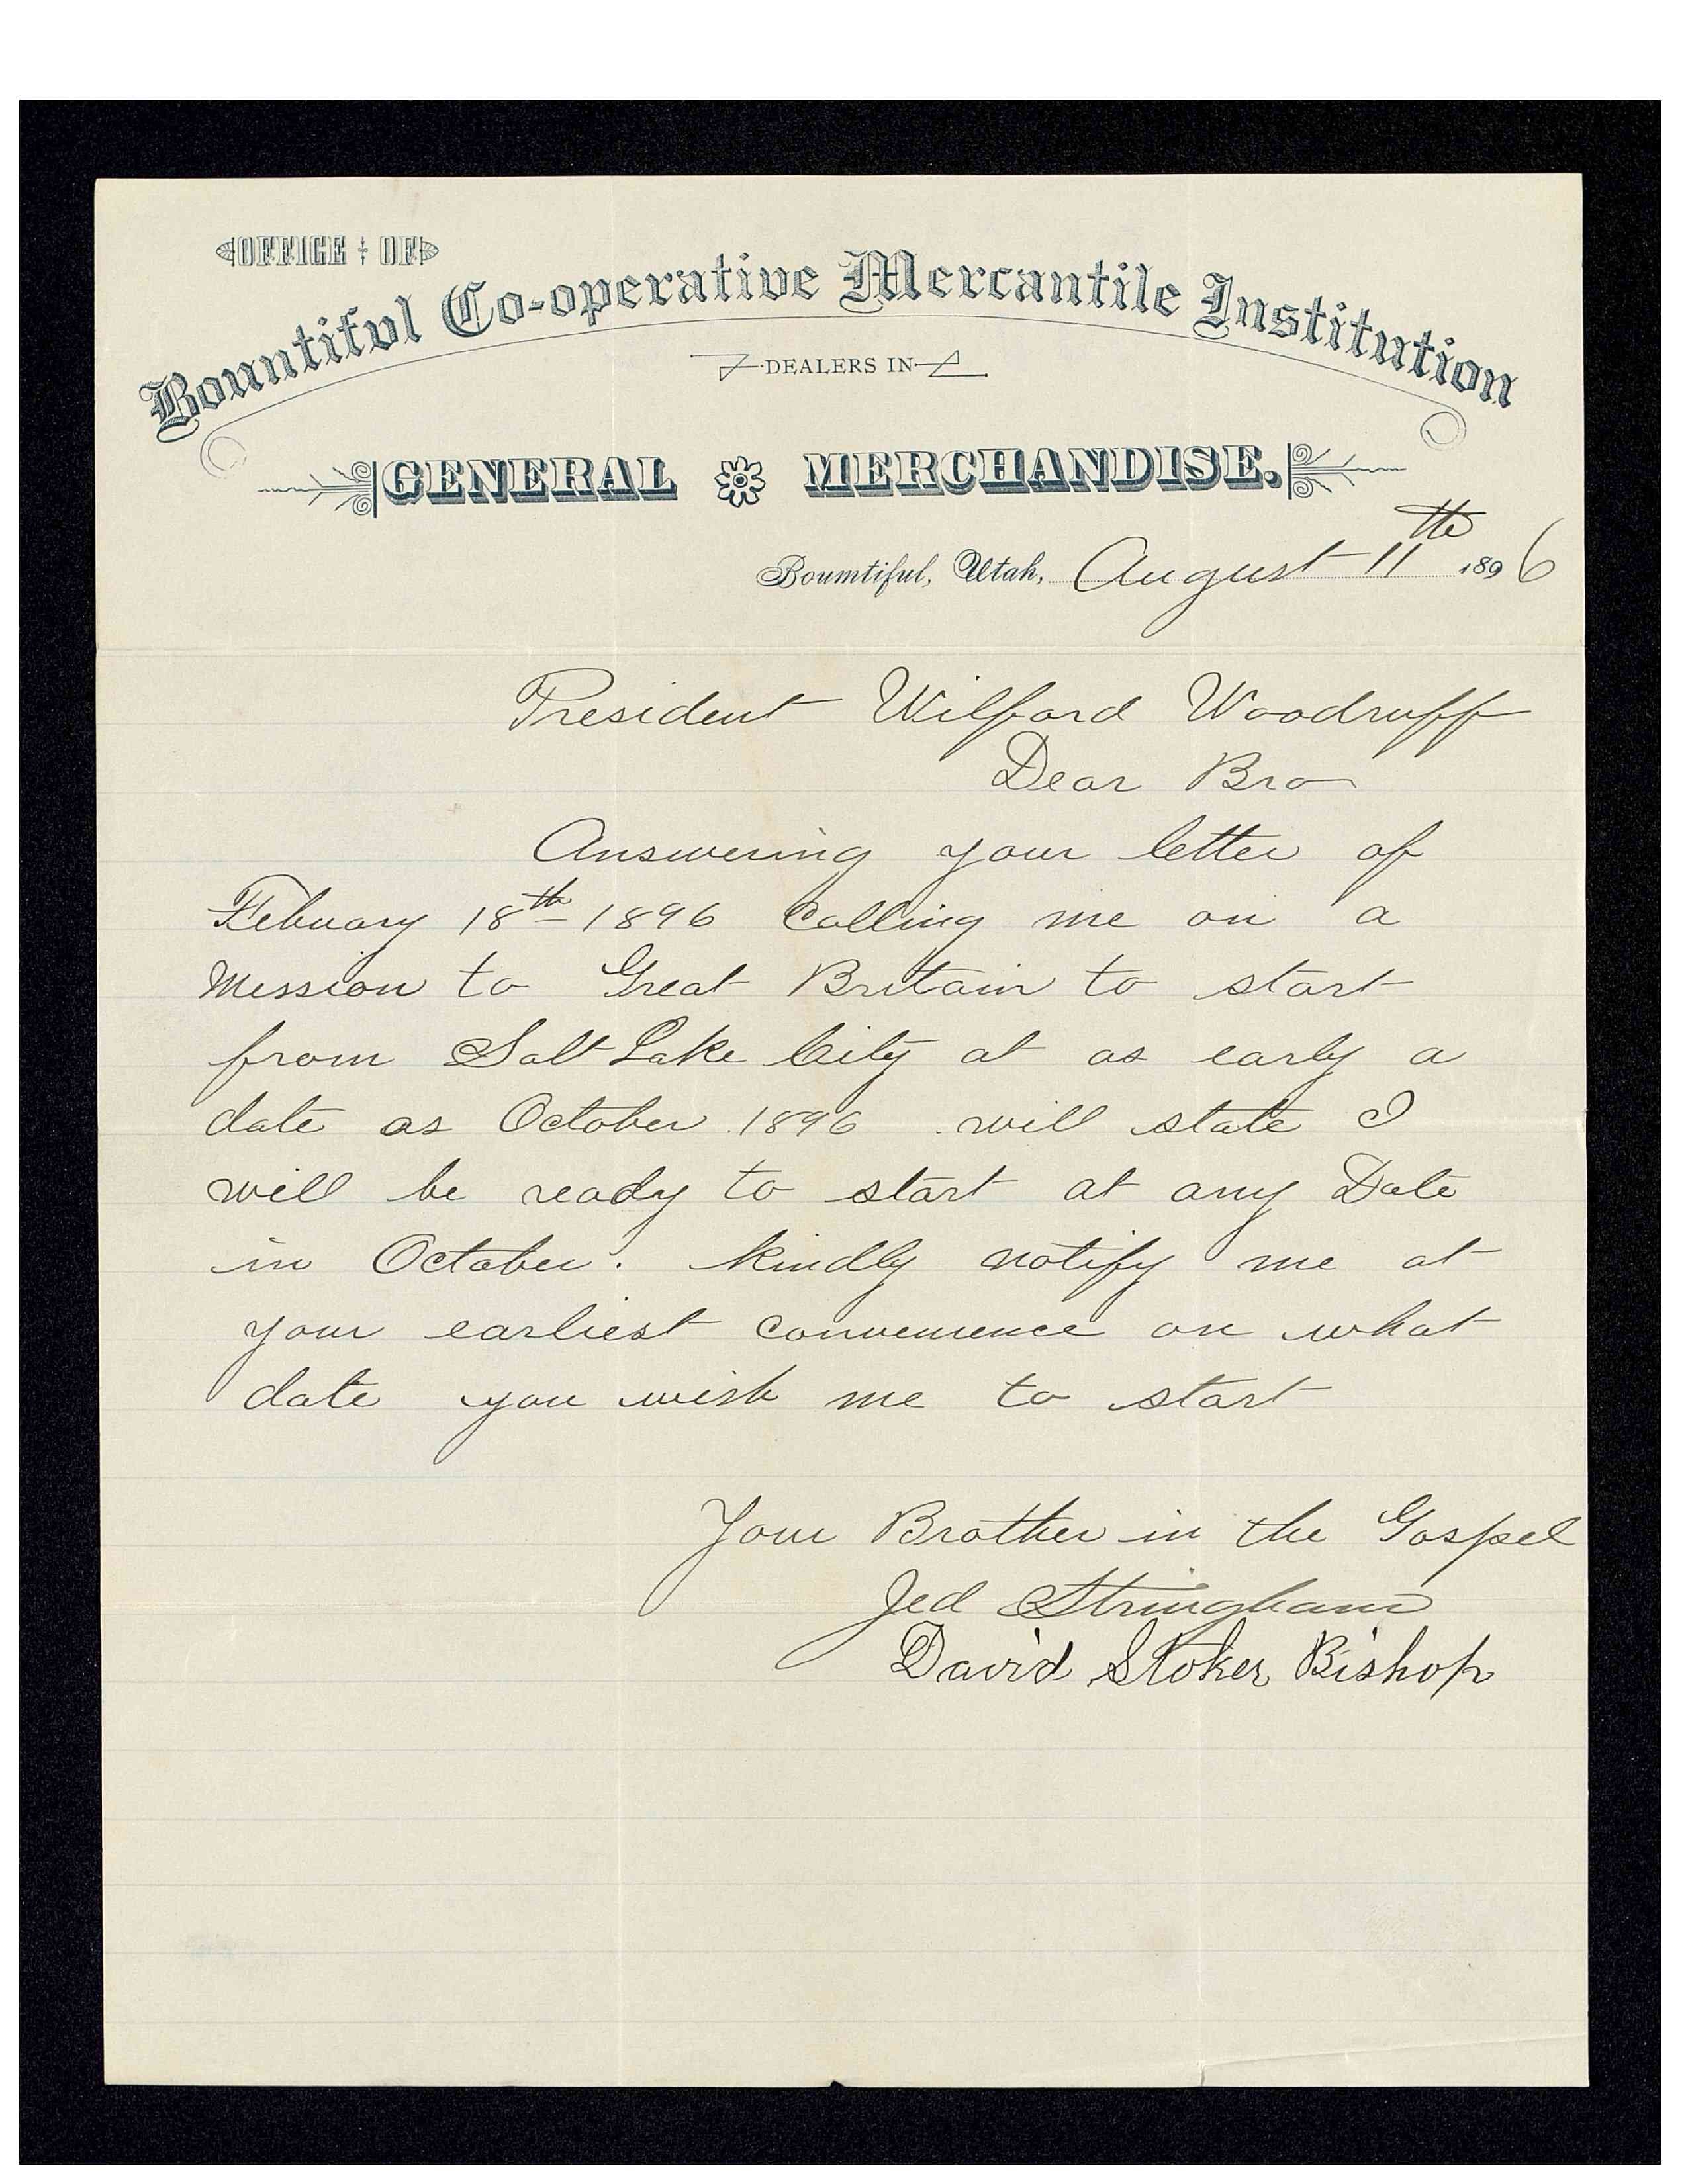 OFFICE OF
Bountiful Co-operative Mercantile Institution
DEALERS IN
GENERAL MERCHANDISE.
Bountiful, Utah, August 11th 1896
President Wilford Woodruff
Dear Bro
Answering your letter of
Febuary 18th 1896 Calling me on a
Mission to Great Britain to start
from Salt Lake City at as early a
date as October 1896 will state I
will be ready to start at any Date
in October. Kindly notify me at
your earliest convenience on what
date you wish me to start
Your Brother in the Gospel
Jed Stringham
David Stoker Bishop